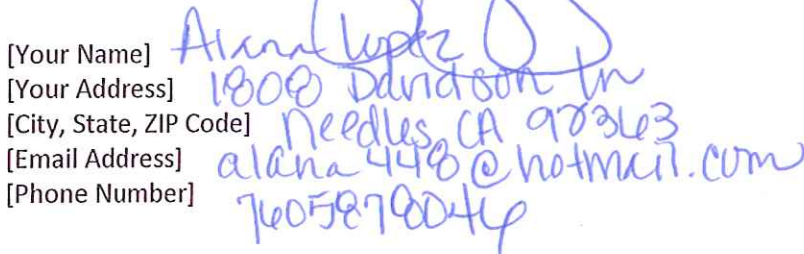 [Your Name] Alana Lopez
[Your Address] 1808 Davidson Ln
[City, State, ZIP Code] Needles, CA 92363
[Email Address] alana448@hotmail.com
[Phone Number] 7605878046